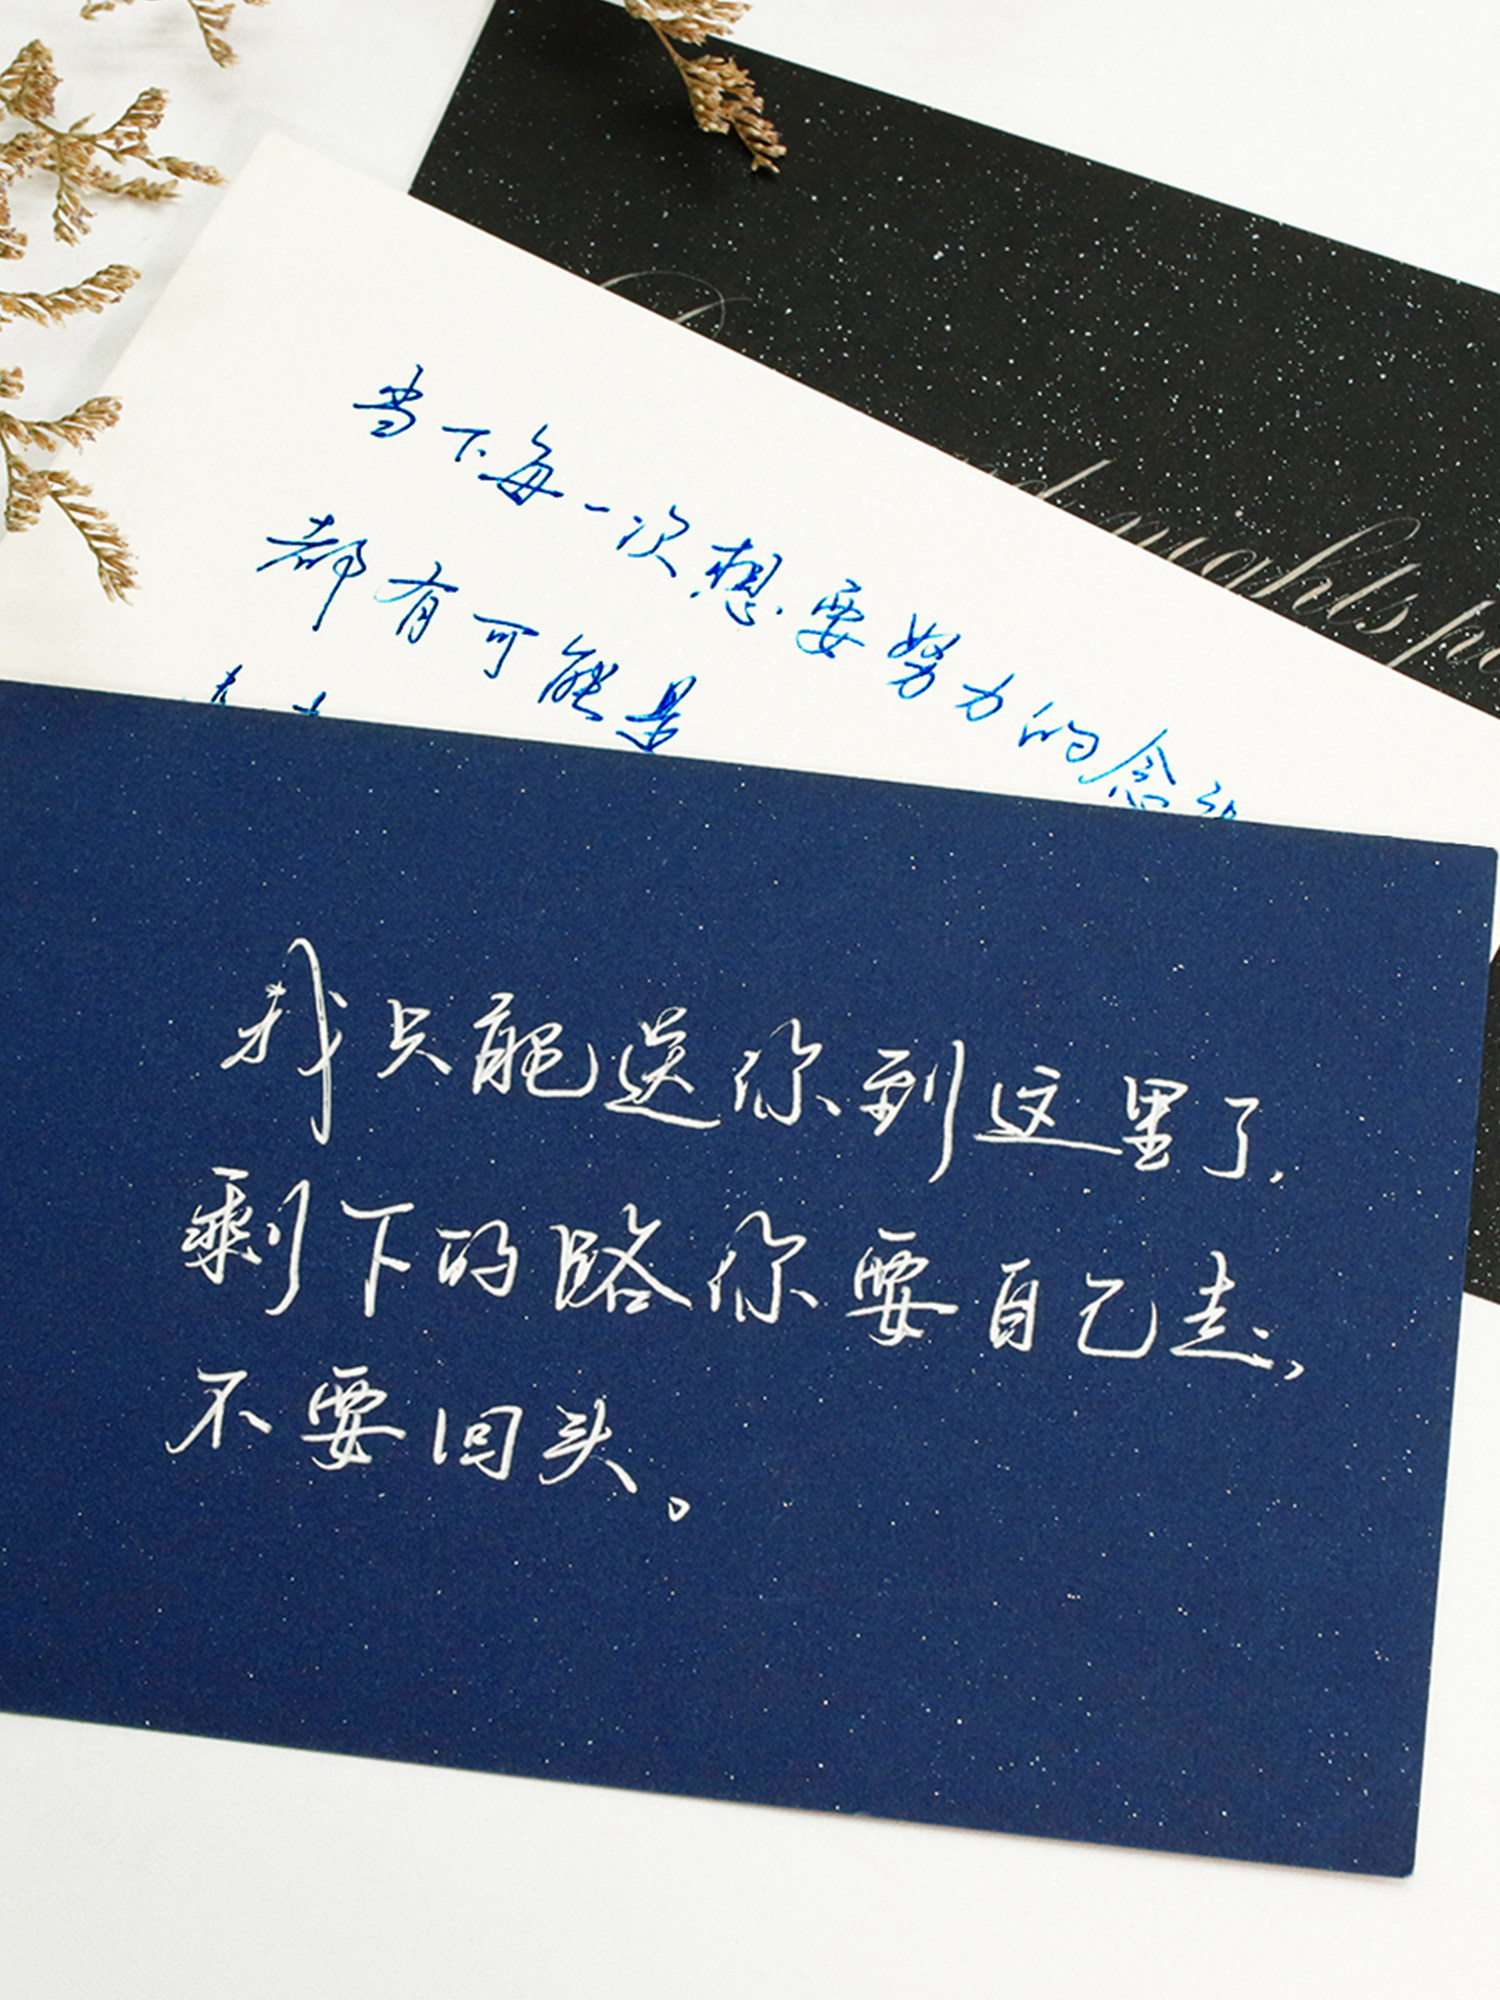 当下每一次想要努力的念
都有可能是
nights
我只能送你到这里了,
剩下的路你要自己走,
不要回头。